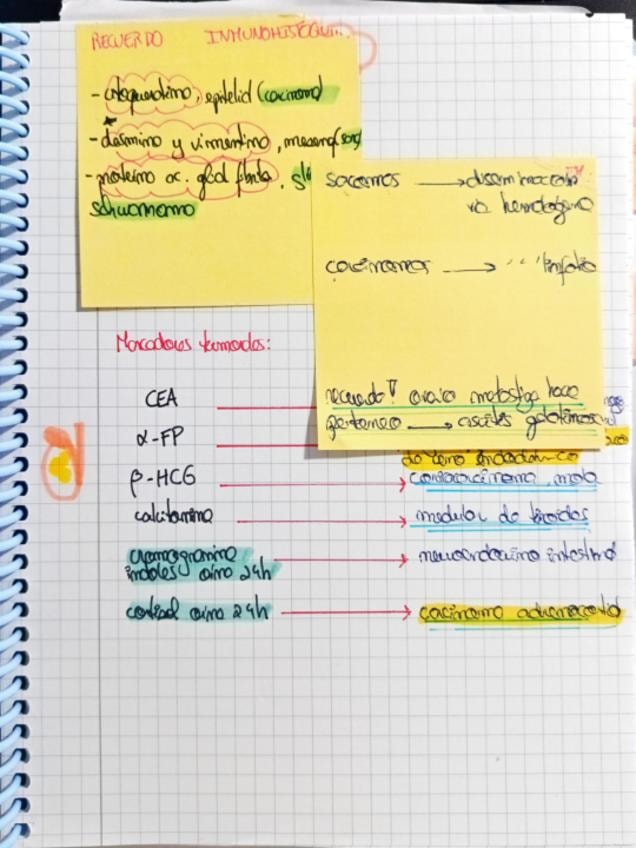 RECUERDO INMUNOHISTOQUI...
- citoqueratina, epitelial (carcinoma)
- desmina y vimentina, mesenq (sarc
- proteina ac. glial fibrilar,
schwannoma
sarcomas → diseminación
vía hematógena
carcinomas → " " linfática
recuerdo! ovario metastiza hacia
peritoneo → ascitis gelatinosa
Marcadores tumorales:
CEA
α-FP
de seno endodérmico
β-HCG → coriocarcinoma, mola
calcitonina → medular de tiroides
cromogranina
indoles orina 24h → neuroendocrino intestinal
cortisol orina 24h → carcinoma adrenocortical